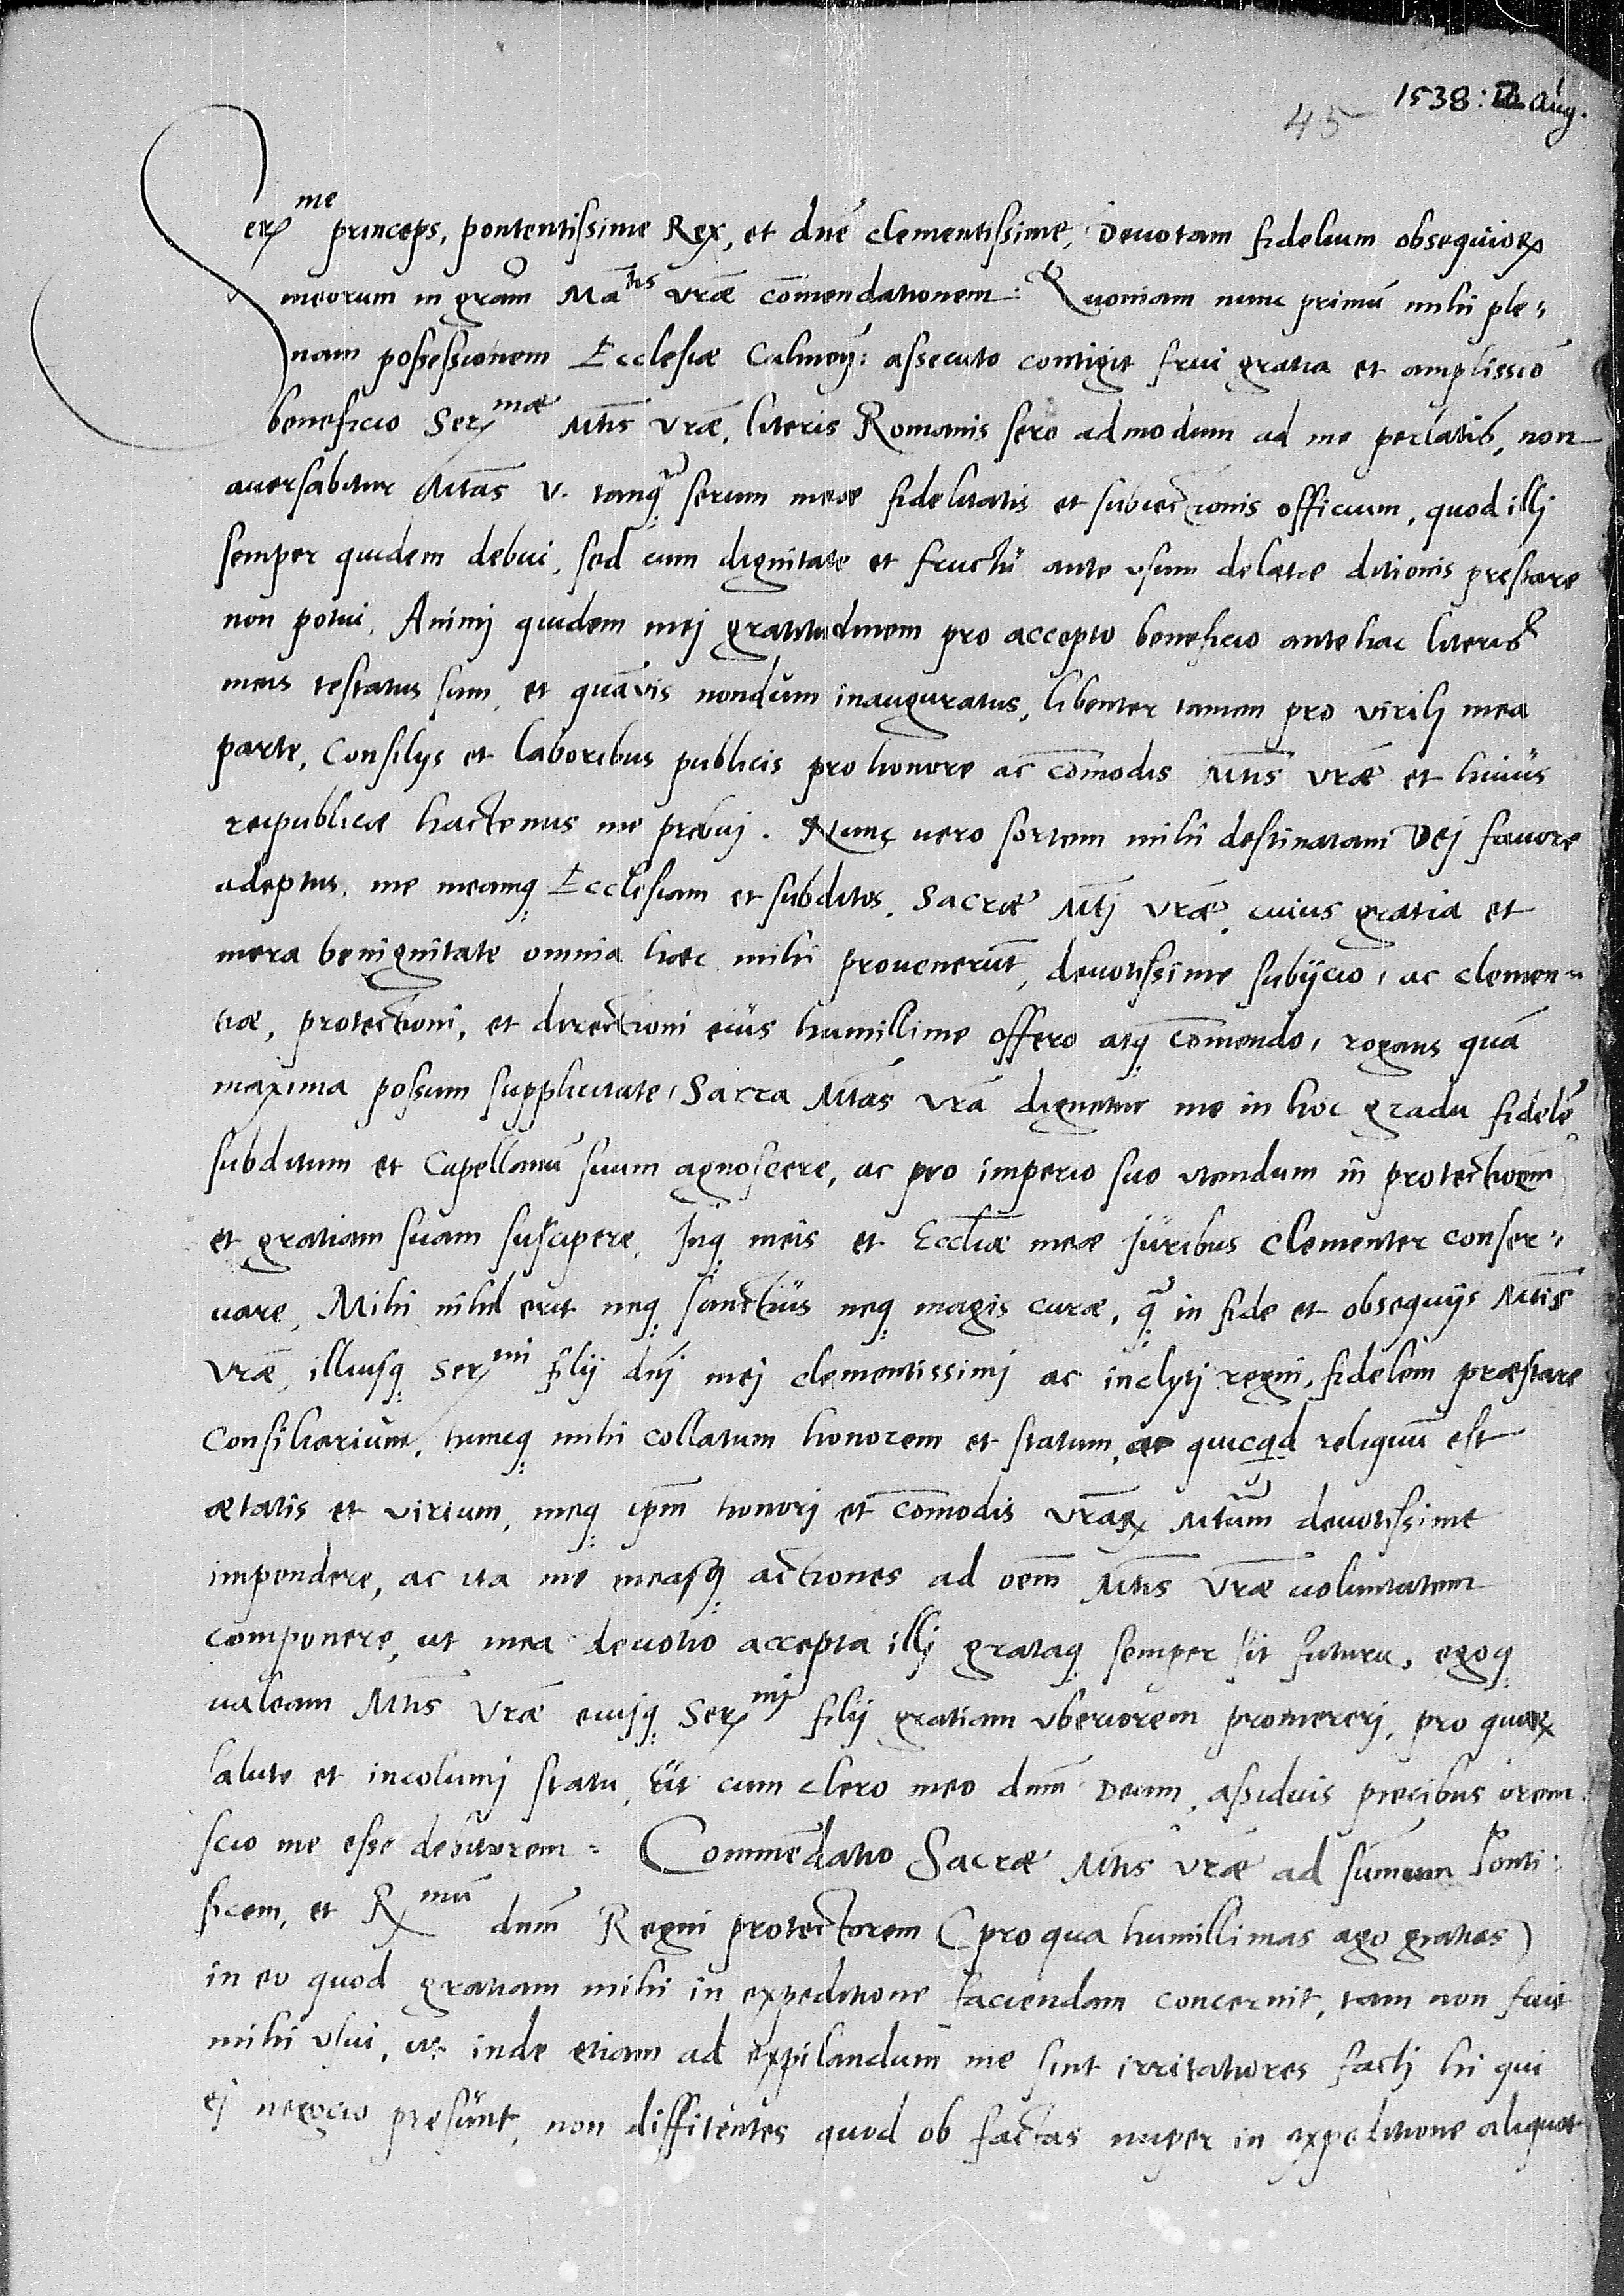 1538: Aug.
45
Ser(me) princeps, pontentissime Rex, et dn̄e clementissime, Deuotam fidelium obsequiorꝝ
meorum in gr̄am Ma(tis) vr̄æ com̄endationem: Quoniam nunc primū mihi ple„
nam possessionem Ecclesiæ Culmeñ: assecuto contigit frui gratia et amplissīo
beneficio Ser(mæ) Mt̄is Vr̄æ, literis Romanis sero admodum ad me perlatis, non
auersabitur Mt̄as V. tanq̄ serum meæ fidelitatis et subiectionis officium, quod illj
semper quidem debui, sed cum dignitate et fructu ante vsum delatæ ditionis prestare
non potui. Animj quidem mej gratitudinem pro accepto beneficio antehac literis
meis testatus sum, et quāvis nondum inauguratus, libenter tamen pro virilj mea
parte, Consilijs et laboribus publicis pro honore ac com̄odis Mt̄is Vr̄æ et huius
reipublicæ hactenus me prebuj. Nunc uero sortem mihi destinatam Dej fauore
adeptus, me meamq; Ecclesiam et subditos, Sacræ Mt̄j Vr̄æ, cuius gratia et
mera benignitate omnia hæc mihi prouenerūt, deuotissime subijcio, ac clemen„
tiæ, protectioni, et directioni eius humillime offero atq; com̄endo, rogans quā
maxima possum supplicitate, Sacra Mt̄as Vr̄a dignetur me in hoc gradu fidelē
subditum et Capellanū suum agnoscere, ac pro imperio suo vtendum in protectiōem
et gratiam suam suscipere, Inq; meis et Eccl̄iæ meæ iuribus clementer conser„
uare, Mihi nihil erit neq; sanctius neq; magis curæ, q̄ in fide et obsequijs Mt̄is
Vr̄æ, illiusq; Ser(mi) filij dn̄j mej clementissimj ac inclytj regni, fidelem præstare
Consiliarium, huncq; mihi collatum honorem et statum, ac quicqd reliquū est
ætatis et virium, meq; ip̄m honorj et com̄odis Vr̄arꝝ Mt̄um deuotissime
impendere, ac ita me measq; actiones ad oēm Mt̄is Vr̄æ uoluntatem
componere, ut mea deuotio accepta illj grataq; semper sit futura, egoq;
ualeam Mt̄is Vr̄æ eiusq; Ser(mj) filij gratiam vberiorem promererj, pro quorꝝ
salute et incolumj statu, ut cum clero meo dn̄m Deum, assiduis precibus orem
scio me esse debitorem: Commēdatio Sacræ Mt̄is Vr̄æ ad sum̄um Ponti:
ficem, et R(mū) dn̄m Regni protectorem (pro qua humillimas ago gratias)
in eo quod gratiam mihi in expeditione faciendam concernit, tam non fuit
mihi vsui, ut inde etiam ad expilandum me sint irritatiores factj hi qui
ej negocio presunt, non diffitentes quod ob factas nuper in expeditione aliquot